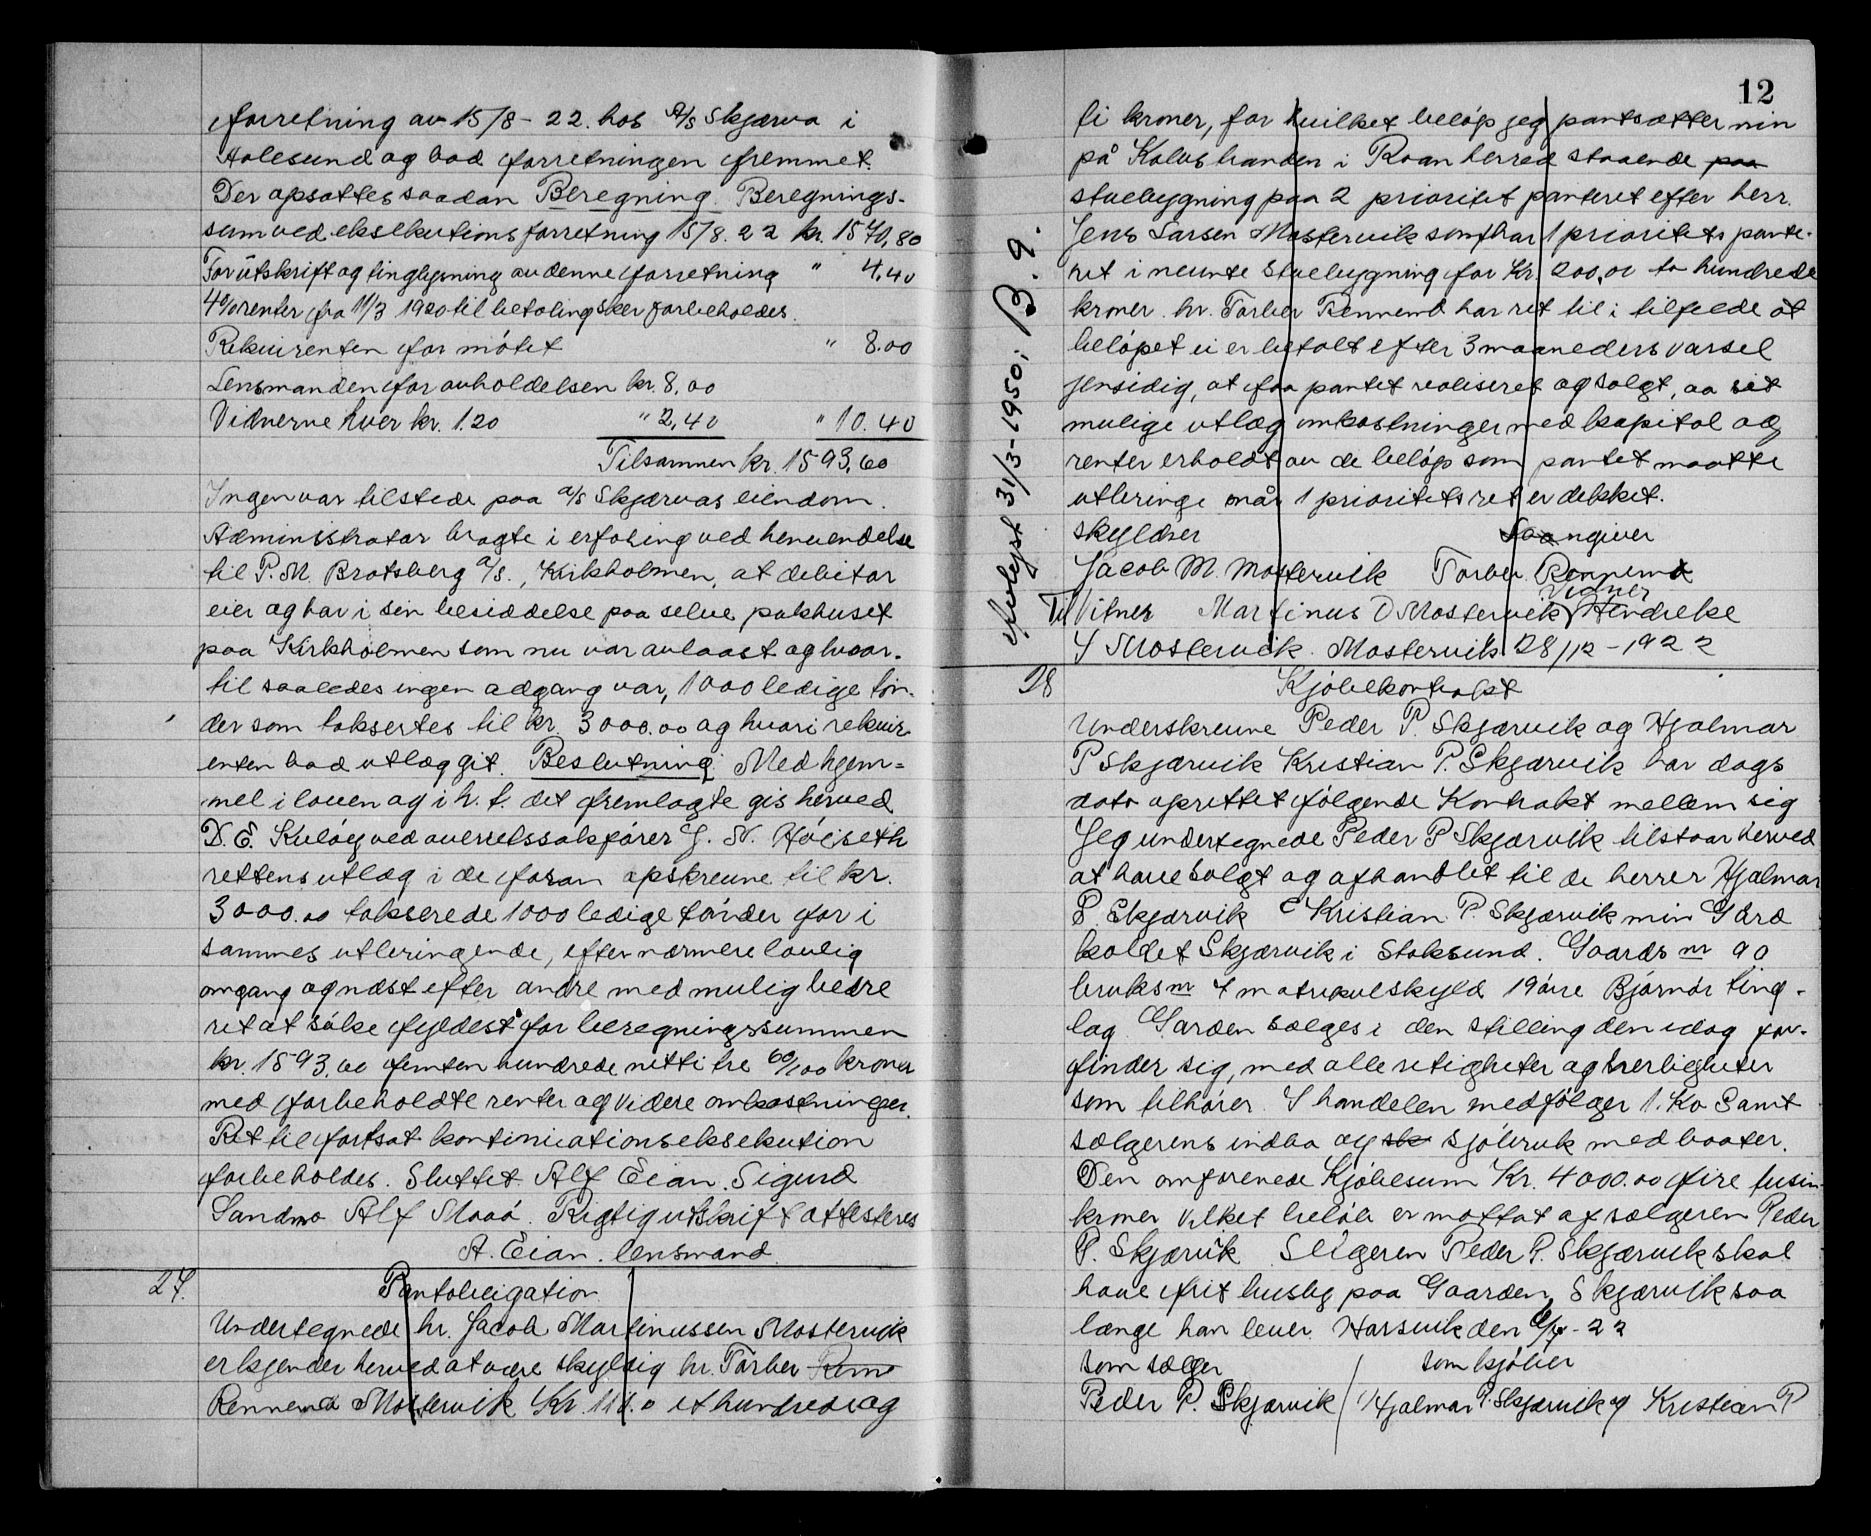 forretning av 15/8-22. hos A/S Skjærva i
Aalesund og bad forretningen fremmet.
Der opsattes saadan Beregning. Beregnings-
sum ved eksekutionsforretning 15/8.22 kr. 1570,80
For utskrift og tinglysning av denne forretning " 4.40
4% renter fra 11/3 1920 til betaling sker forbeholdes.
Rekvirenten for møtet " 8.00
Lensmanden for avholdelsen kr. 8,00
Vidnerne hver kr. 1.20 " 2,40 " 10.40
Tilsammen kr. 1593,60
Ingen var tilstede paa a/s Skjærvas eiendom.
Administrator bragte i erfaring ved henvendelse
til P.M. Bratsberg a/s., Kirkholmen, at debitor
eier og har i sin besiddelse paa selve pakhuset
paa Kirkholmen som nu var avlaast og hvor-
til saaledes ingen adgang var, 1000 ledige tøn-
der som taksertes til kr. 3000.00 og hvori rekvir-
enten bad utlæg git. Beslutning Med hjem-
mel i loven og i h. t. det fremlagte gis herved
D.E. Kuløy ved overretssakfører J. N. Høiseth
rettens utlæg i de foran opskrevne til kr.
3000.00 takserede 1000 ledige tønder for i
sammes utbringende, efter nærmere lovlig
omgang og næst efter andre med mulig bedre
ret at søke fyldest for beregningssummen
kr. 1593.60 femten hundrede nitti tre 60/100 kroner
med forbeholdte renter og videre omkostninger.
Ret til fortsat kontinuationseksekution
forbeholdes. Sluttet. Alf Eian. Sigurd
Sandmo Alf Moaø. Rigtig utskrift attesteres
A. Eian. lensmand.
27. Pantobligation
Undertegnede hr. Jacob Martinussen Mostervik
erkjender herved at være skyldig hr. Torber Renn
Rennemd Mostervik Kr. 110.0 et hundrede og
12
ti kroner, for hvilket beløp jeg pantsætter min
på Kalvstranden i Roan herred staaende paa
stuebygning paa 2 prioritet panteret efter herr.
Jens Larsen Mostervik som har 1 prioritets pante-
ret i nevnte Stuebygning for Kr. 200,00 to hundrede
kroner. hr. Torber Rennemd har ret til i tilfelde at
beløpet ei er betalt efter 3 maaneders varsel
jensidig, at faa pantet realiseret og solgt, aa sit
mulige utlæg omkostninger med kapital og
renter erholdt av de beløp som pantet maatte
utbringe når 1 prioritets ret er dekket.
skyldner Laangiver
Jacob M. Mostervik Torber Rennemd
Vidner
Til Vitner Martinus D Mostervik Hendreke
J Mostervik. Mostervik 28/12-1922
avlyst 31/3-1950; B. 9.
28 Kjøbekontrakt
Underskrevne Peder P. Skjærvik og Hjalmar
P Skjærvik Kristian P. Skjærvik har dags
dato oprettet følgende Kontrakt mellem sig
Jeg undertegnede Peder P Skjærvik tilstaar herved
at have solgt og afhandlet til de herrer Hjalmar
P. Skjærvik & Kristian P. Skjærvik min Gård
kaldet Skjærvik i Stoksund. Gaards nr 90
bruks nr 4 matrikulskyld 19 øre Bjørnør ting-
lag Garden sælges i den stilling den idag for-
finder sig, med alle retigheter og herligheter
som tilhører. I handelen medfølger 1. Ko Samt
sælgerens indbo og sk sjøbruk med baater.
Den omforenede Kjøbesum Kr. 4000.00 fire tusin
kroner vilket beløb er mottat af sælgeren Peder
P. Skjærvik Sælgeren Peder P. Skjærvik skal
have frit husly paa Gaarden Skjærvik saa
længe han lever. Harsvik den -22
som sælger / som kjøber
Peder P. Skjærvik / Hjalmar P. Skjærvik og Kristian P